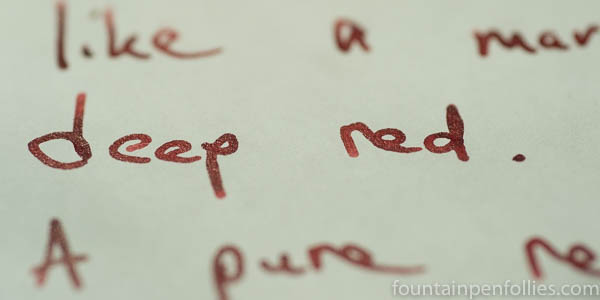 like a mar
deep red.
A pure re
fountainpenfollies.com